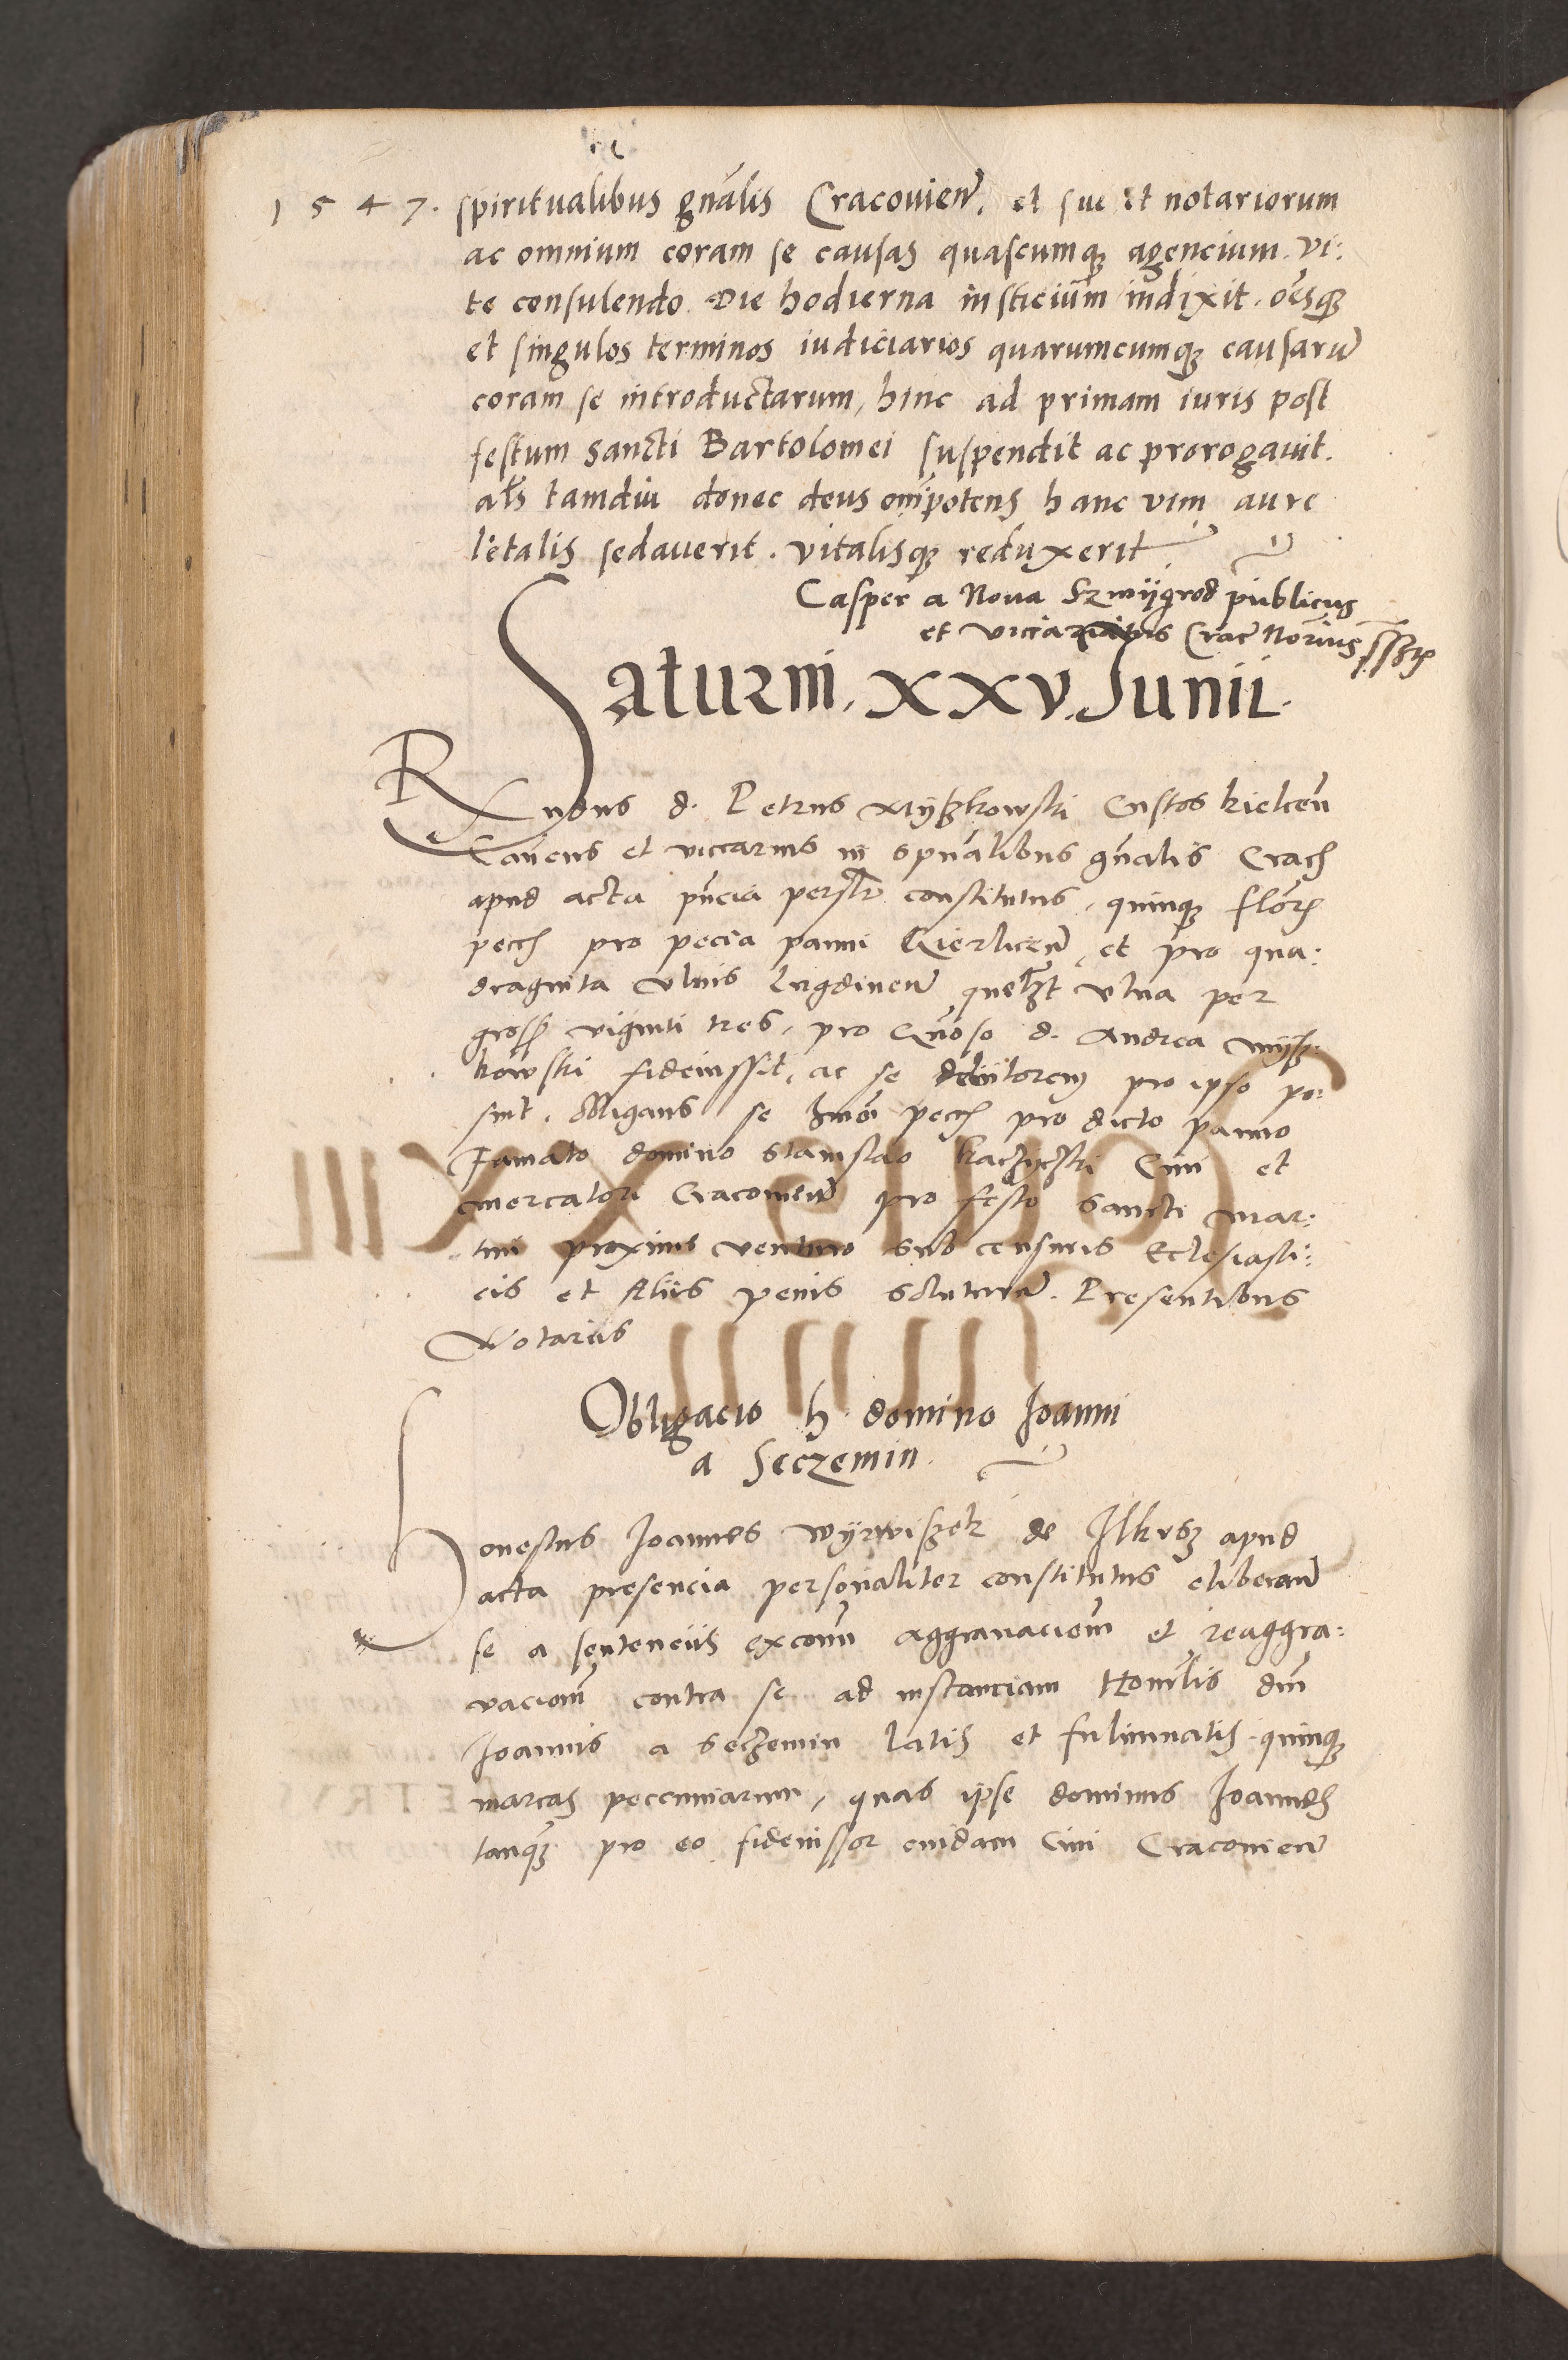 1547. spiritualibus gn̄alis Cracovien̄. et sue et notariorum
ac omnium coram se causas quascumq3 agencium. vi:
te consulendo. Die hodierna iusticium indixit. om̄esq3
et singulos terminos iudiciarios quarumcumq3 causarū
coram se introductarum, hinc ad primam iuris post
festum sancti Bartolomei suspendit ac prorogavit.
al̄s tamdiu donec deus omīpotens hanc vim aure
letalis sedaverit. vitalisq3 reduxerit
Casper a Nova Szmÿgrod publicus
et viccariatus Crac̄ Norius sszt
Saturni. XXV. Junii.
Rn̄dus d. Petrus Mÿszkowski Custos kielcen̄
Can̄cus et viccarius in spūalibus gn̄alis Crac̄
apud acta pn̄cia persl̄r constitutus, quinq3 flōr
pecc̄ pro pecia panni Gierlicen̄, et pro qua:
draginta ulnis lugdinen̄ quel̄3t ulna per
gross̄ viginti tres, pro Gn̄oso d. Andrea mÿsz:
kowski fideiussit, ac se debitorem pro ipso po:
suit. Obligans se h̄mōi pecc̄ pro dicto panno
Famato domino Stanislao Civi et
mercatori Cracovien̄ pro festo sancti Mar:
tini proxime venturo sub censuris Ecclesiasti:
cis et Aliis penis soluturū. Presentibus
Notariis
Obligacio h. domino Joanni
a Seczemin.
Honestus Joannes Wÿrwiszek de Ilkusz apud
acta presencia personaliter constitutus eliberan̄
se a sentenciis excom̄ aggravaciom̄ et reaggra:
vaciom̄ contra se ad instanciam Hono͞rlis dn̄i
Joannis a Seczemin latis et fulminatis. quinq3
marcas peccuniarum, quas ipse dominus Joannes
tanq3 pro eo fideiussor cuidam Civi Cracovien̄